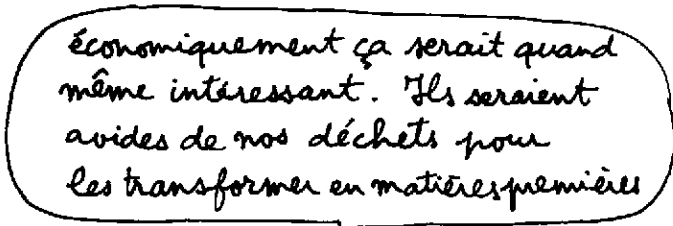 économiquement ça serait quand
même intéressant. Ils seraient
avides de nos déchets pour
les transformer en matières premières